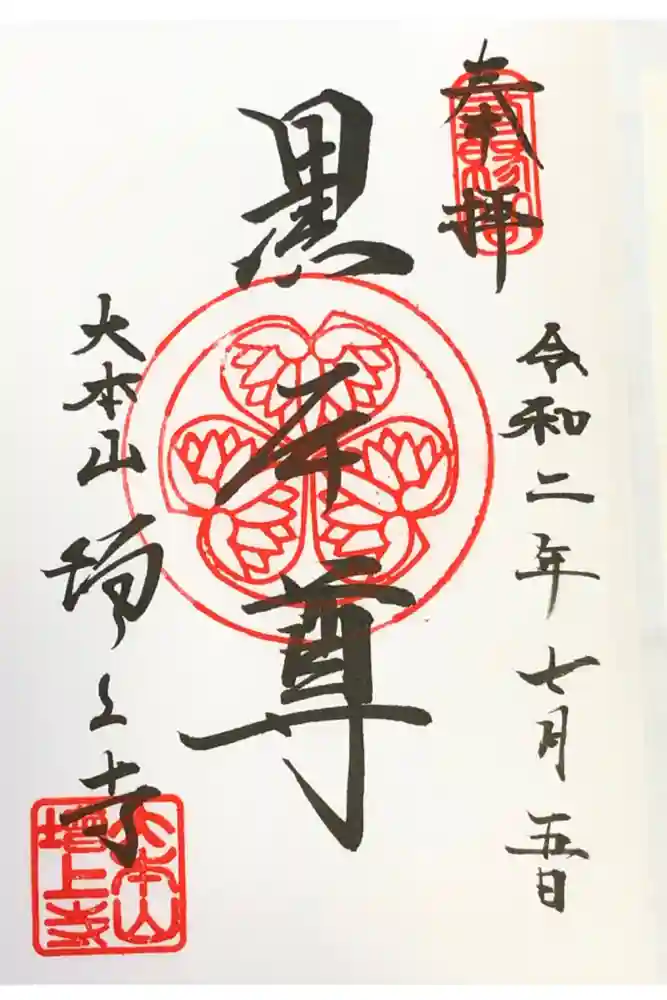 奉拝
令和二年七月五日
黒本尊
大本山増上寺
大本山
增上寺